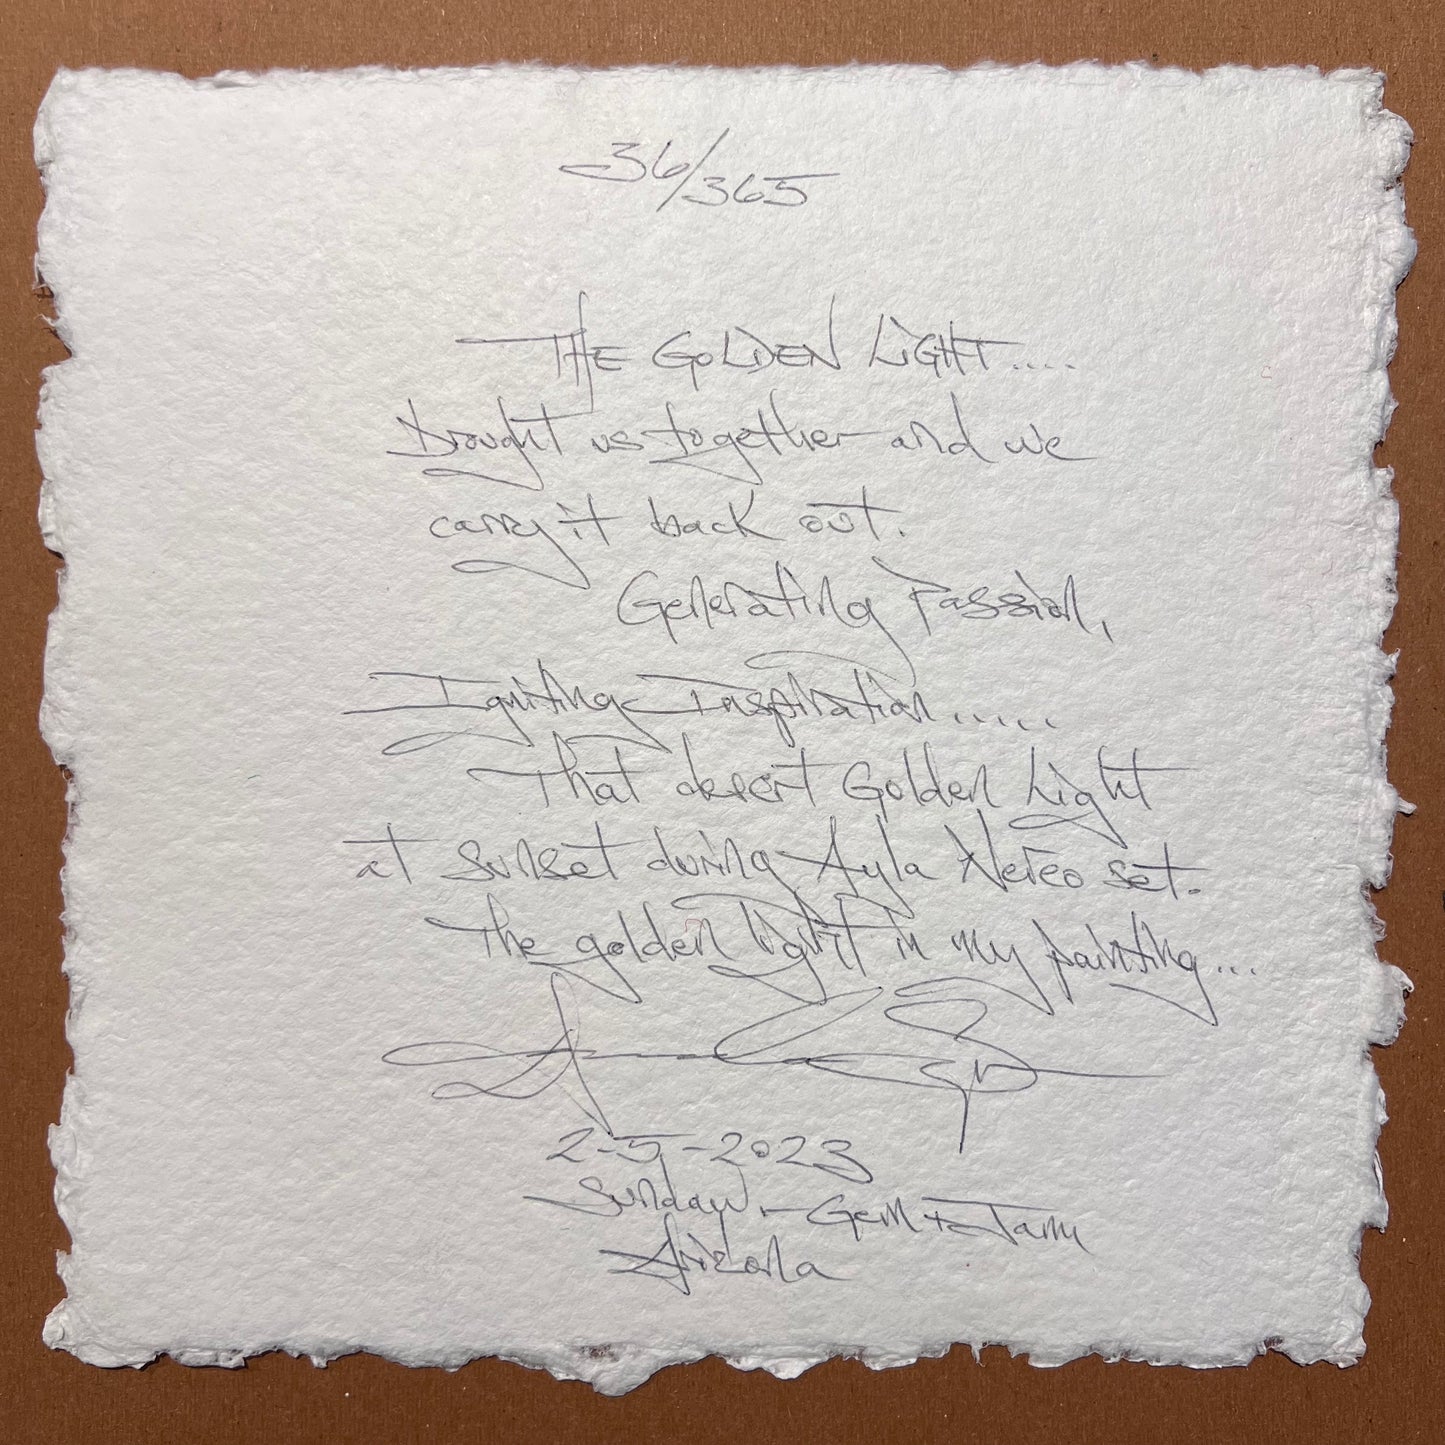 36/365
THE GOLDEN LIGHT....
Brought us together and we
carry it back out.
Generating Passion,
Igniting Inspiration.....
That desert Golden Light
at sunset during Ayla Nereo set.
The golden light in my painting...
2-5-2023
Sunday, - Gem + Jam
Arizona